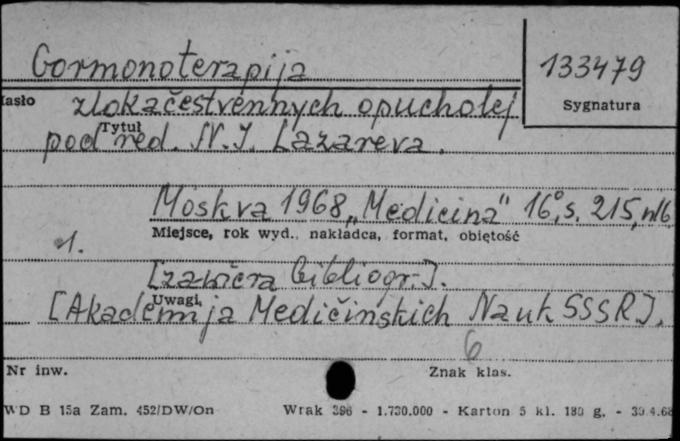 Gormonoterapija
133479
Hasło
zlokačestvennych opucholej
Sygnatura
Tytuł
pod red. N. I. Lazareva.
Moskva 1968 „Medicina" 16°, s. 215, nlb
Miejsce, rok wyd., nakładca, format, objętość
1.
[zawiera bibliogr.].
Uwagi
[Akademija Medičinskich Nauk SSSR].
6
Nr inw.
Znak klas.
WD B 15a Zam. 452/DW/On Wrak 396 - 1.730.000 - Karton 5 kl. 180 g. - 30.4.68